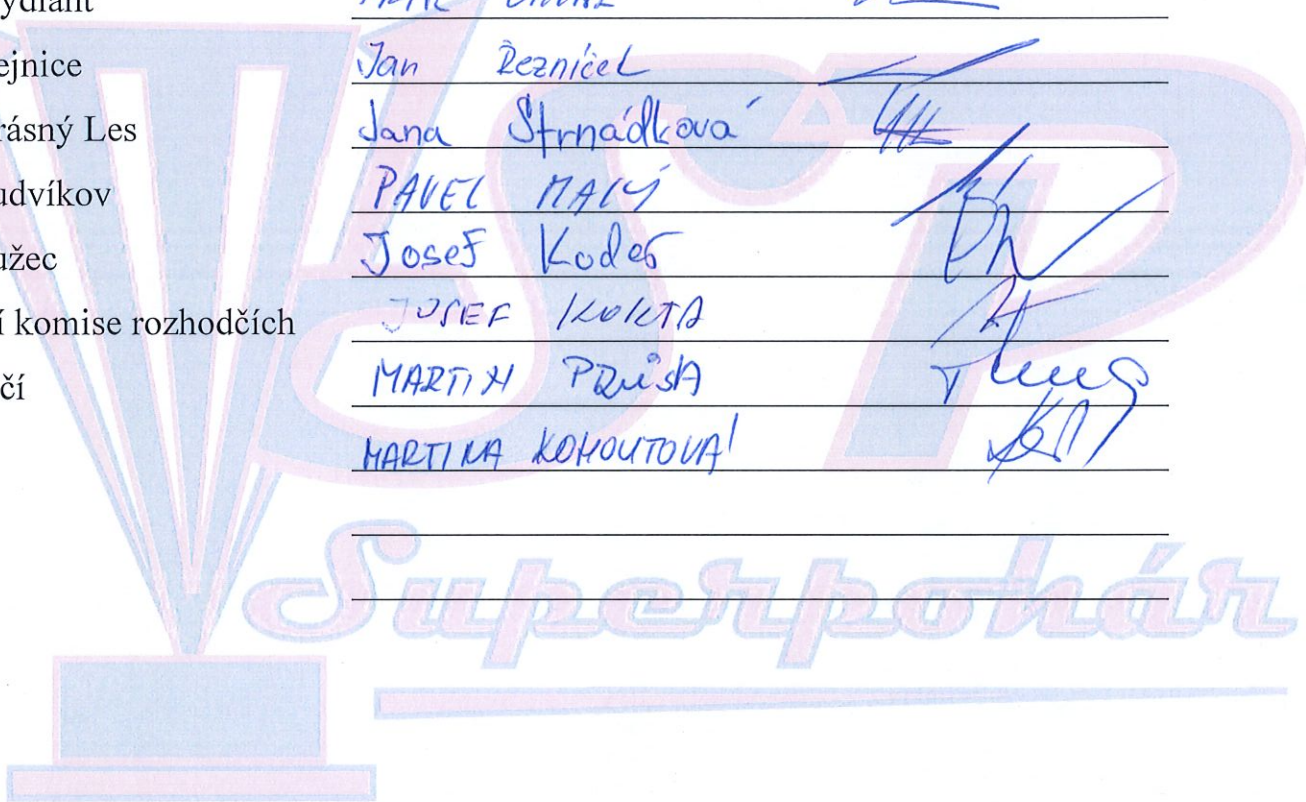 ydlant
ejnice Jan Řezníček
rásný Les Jana Strnádková
udvíkov PAVEL MALÝ
užec Josef Kodeš
í komise rozhodčích JOSEF KOKTA
čí MARTIN PRŮŠA
MARTINA KOHOUTOVÁ
Superpohár